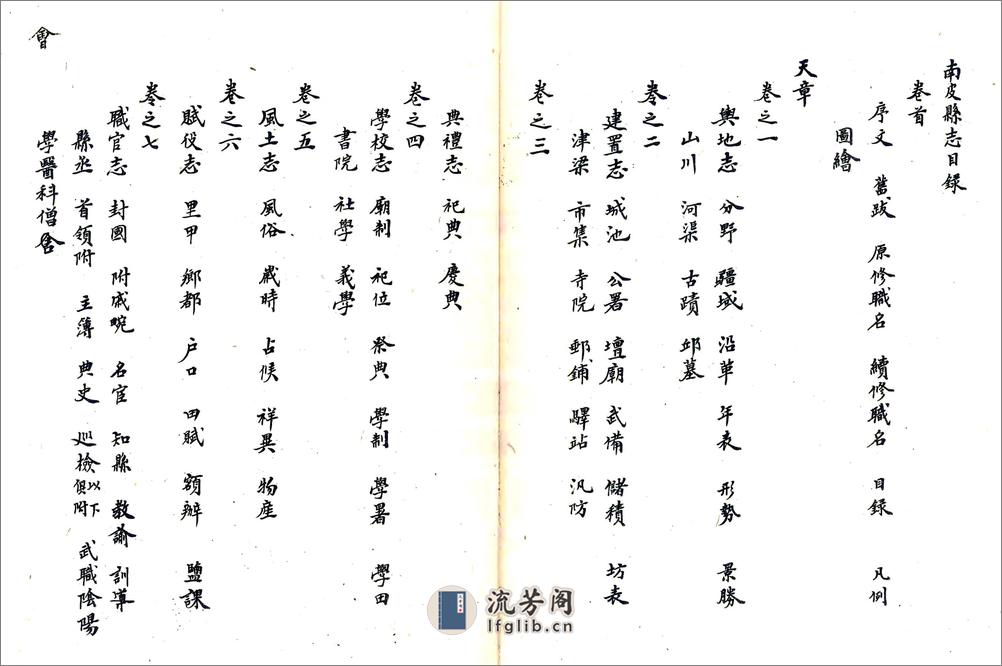 南皮縣志目録
卷首
序文 舊跋 原修職名 續修職名 目録 凡例
圖繪
天章
卷之一
輿地志 分野 疆域 沿革 年表 形勢 景勝
山川 河渠 古蹟 邱墓
卷之二
建置志 城池 公署 壇廟 武備 儲積 坊表
津梁 市集 寺院 郵鋪 驛站 汛防
卷之三
典禮志 祀典 慶典
卷之四
學校志 廟制 祀位 祭典 學制 學署 學田
書院 社學 義學
卷之五
風土志 風俗 歲時 占候 祥異 物産
卷之六
賦役志 里甲 鄉都 户口 田賦 額辦 鹽課
卷之七
職官志 封國 附戚畹 名宦 知縣 教諭 訓導
縣丞 首領附 主簿 典史 巡檢以下俱附 武職陰陽
學醫科僧會
會
流芳阁
lfglib.cn